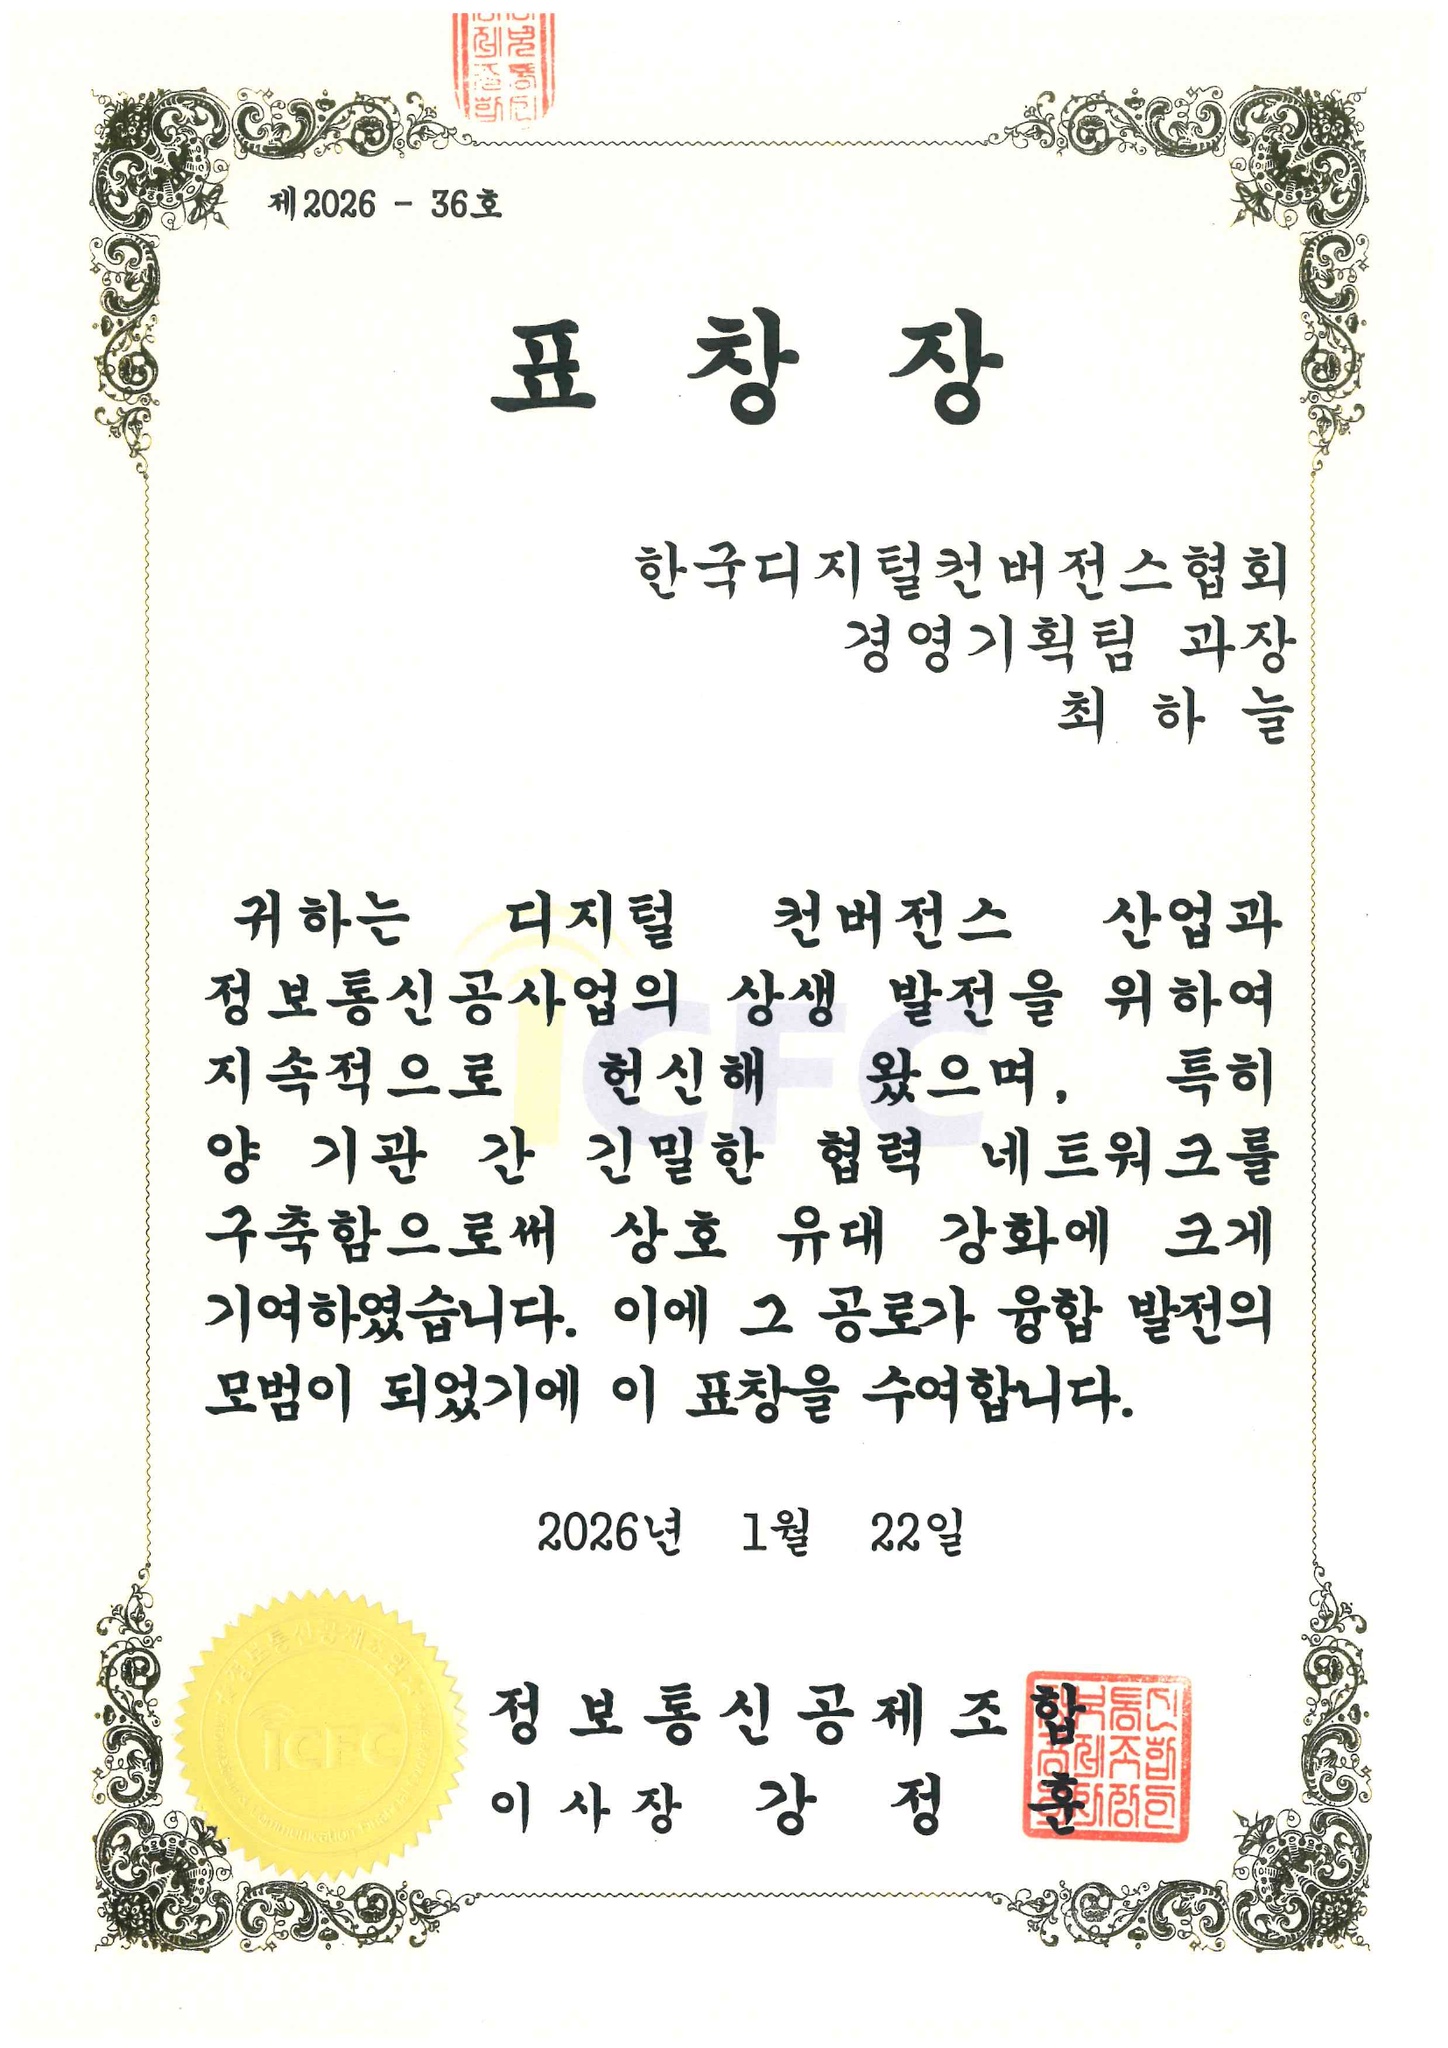 제2026 - 36호
표 창 장
한국디지털컨버전스협회
경영기획팀 과장
최 하 늘
귀하는 디지털 컨버전스 산업과
정보통신공사업의 상생 발전을 위하여
지속적으로 헌신해 왔으며, 특히
양 기관 간 긴밀한 협력 네트워크를
구축함으로써 상호 유대 강화에 크게
기여하였습니다. 이에 그 공로가 융합 발전의
모범이 되었기에 이 표창을 수여합니다.
iCFC
2026년 1월 22일
정보통신공제조합
이사장 강 정 훈
정보통신공제조합
iCFC